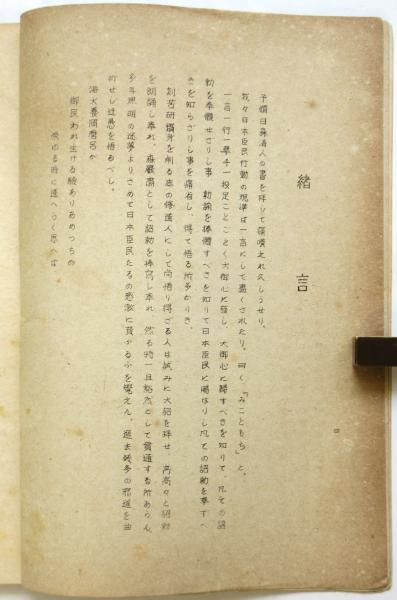 緒言
予頃日森清人の書を拝して領嘆之れ久しうせり。
我々日本臣民行動の規準は一言にして盡くされたり。曰く「みこともち」と。
一言一行一擧手一投足ことごとく大御心に發し、大御心に歸すべきを知りて、凡その詔
勅を奉體せざりし事、勅諭を捧體すべきを知りて日本臣民に賜はりし凡ての詔勅を奉すべ
きを知らざりし事を痛省し、得て悟る所多かりき。
刻苦研鑽身を削る底の修道人にして尚悟り得ざる人は試みに大詔を拜せ、高高々と詔勅
を朗誦し奉れ、森嚴凛として詔勅を捧寫し奉れ、然る時一旦豁然として貫通する所あらん、
多年無明の迷夢よりさめて日本臣民たるの感激に胸ふるふを覺えん。過去幾多の邪道を曲
行せし迂愚を悟るべし。
海犬養岡麿呂が
御民われ生ける驗ありあめつちの
榮ゆる時に遇へらく思へば